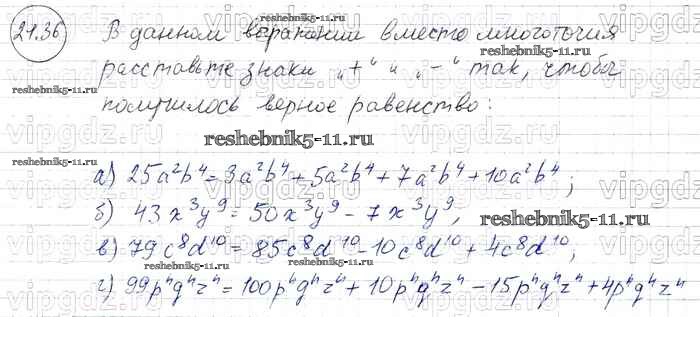 21.36
В данном выражении вместо многоточия
расставьте знаки „+“ и „-“ так, чтобы
получилось верное равенство:
а) 25a²b⁴ = 3a²b⁴ + 5a²b⁴ + 7a²b⁴ + 10a²b⁴;
б) 43x³y⁹ = 50x³y⁹ - 7x³y⁹,
в) 79c⁸d¹⁰ = 85c⁸d¹⁰ - 10c⁸d¹⁰ + 4c⁸d¹⁰;
г) 99pⁿqⁿzⁿ = 100pⁿqⁿzⁿ + 10pⁿqⁿzⁿ - 15pⁿqⁿzⁿ + 4pⁿqⁿzⁿ
reshebnik5-11.ru
vipgdz.ru